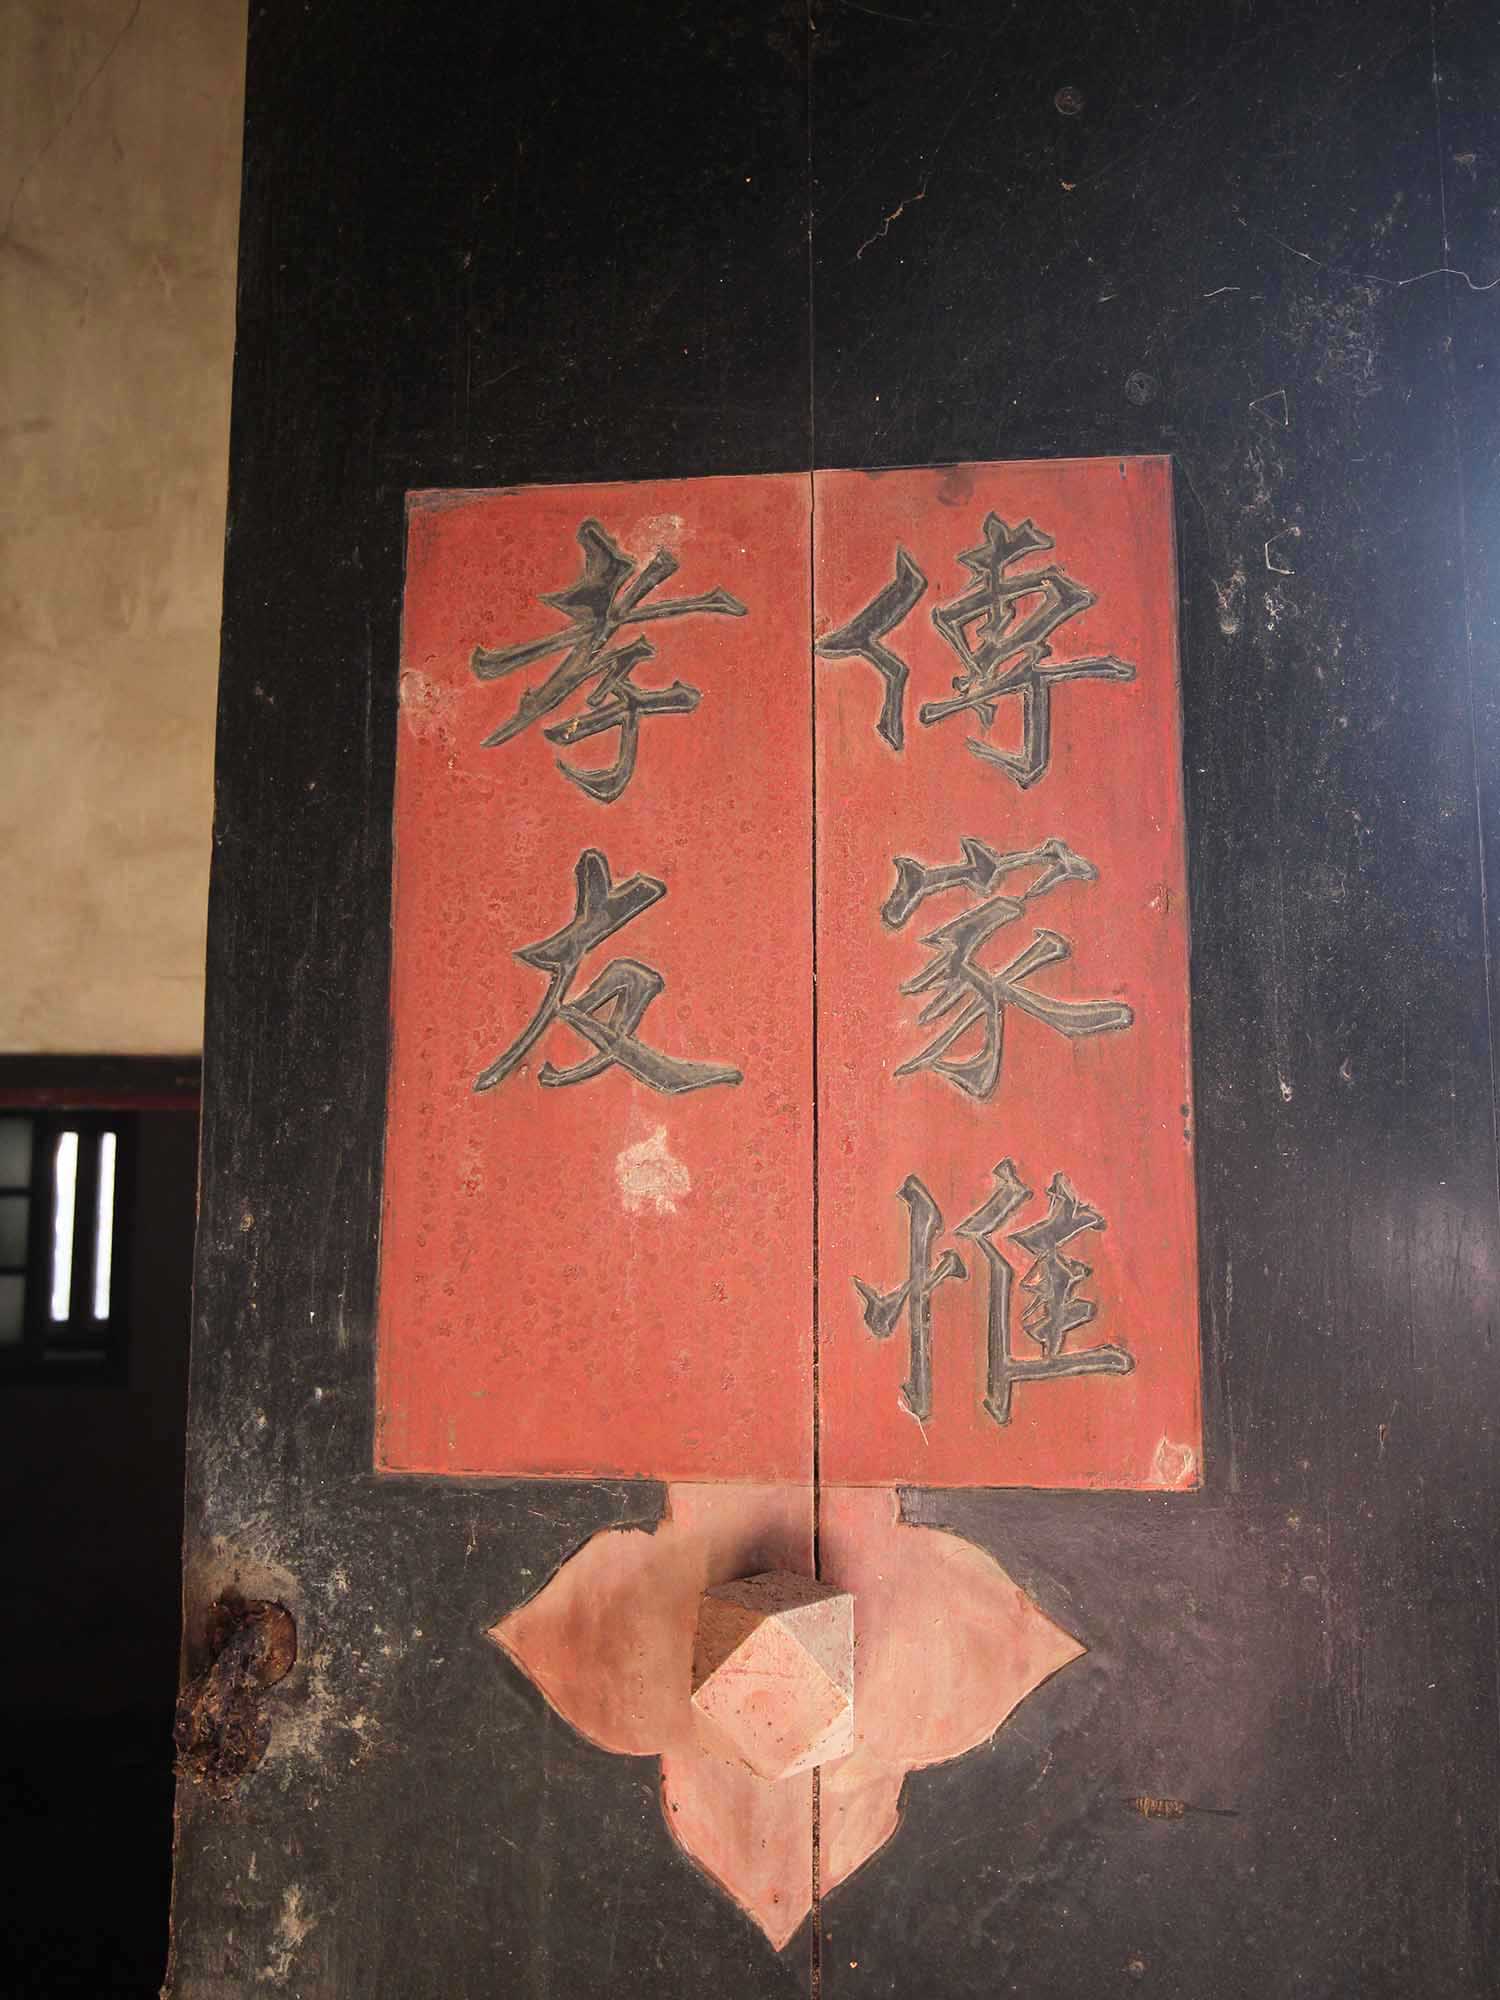 傳家惟
孝友